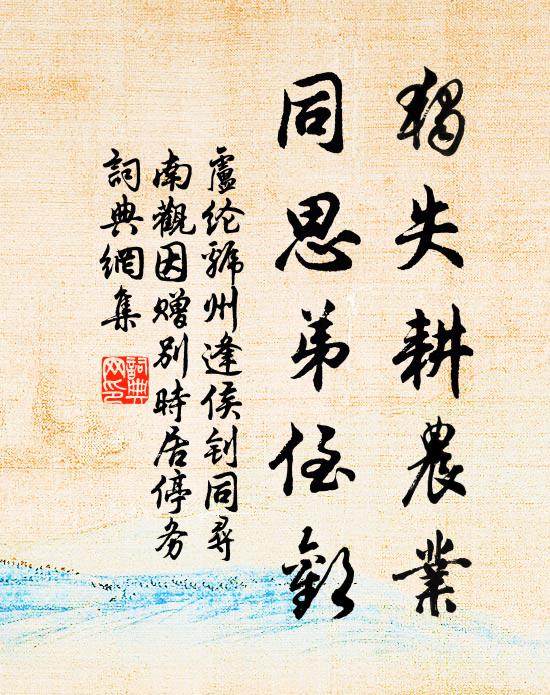 獨失耕農業
同思弟侄歡
盧纶虢州逢侯钊同尋
南觀因赠别時居停务
詞典網集
詞典网印